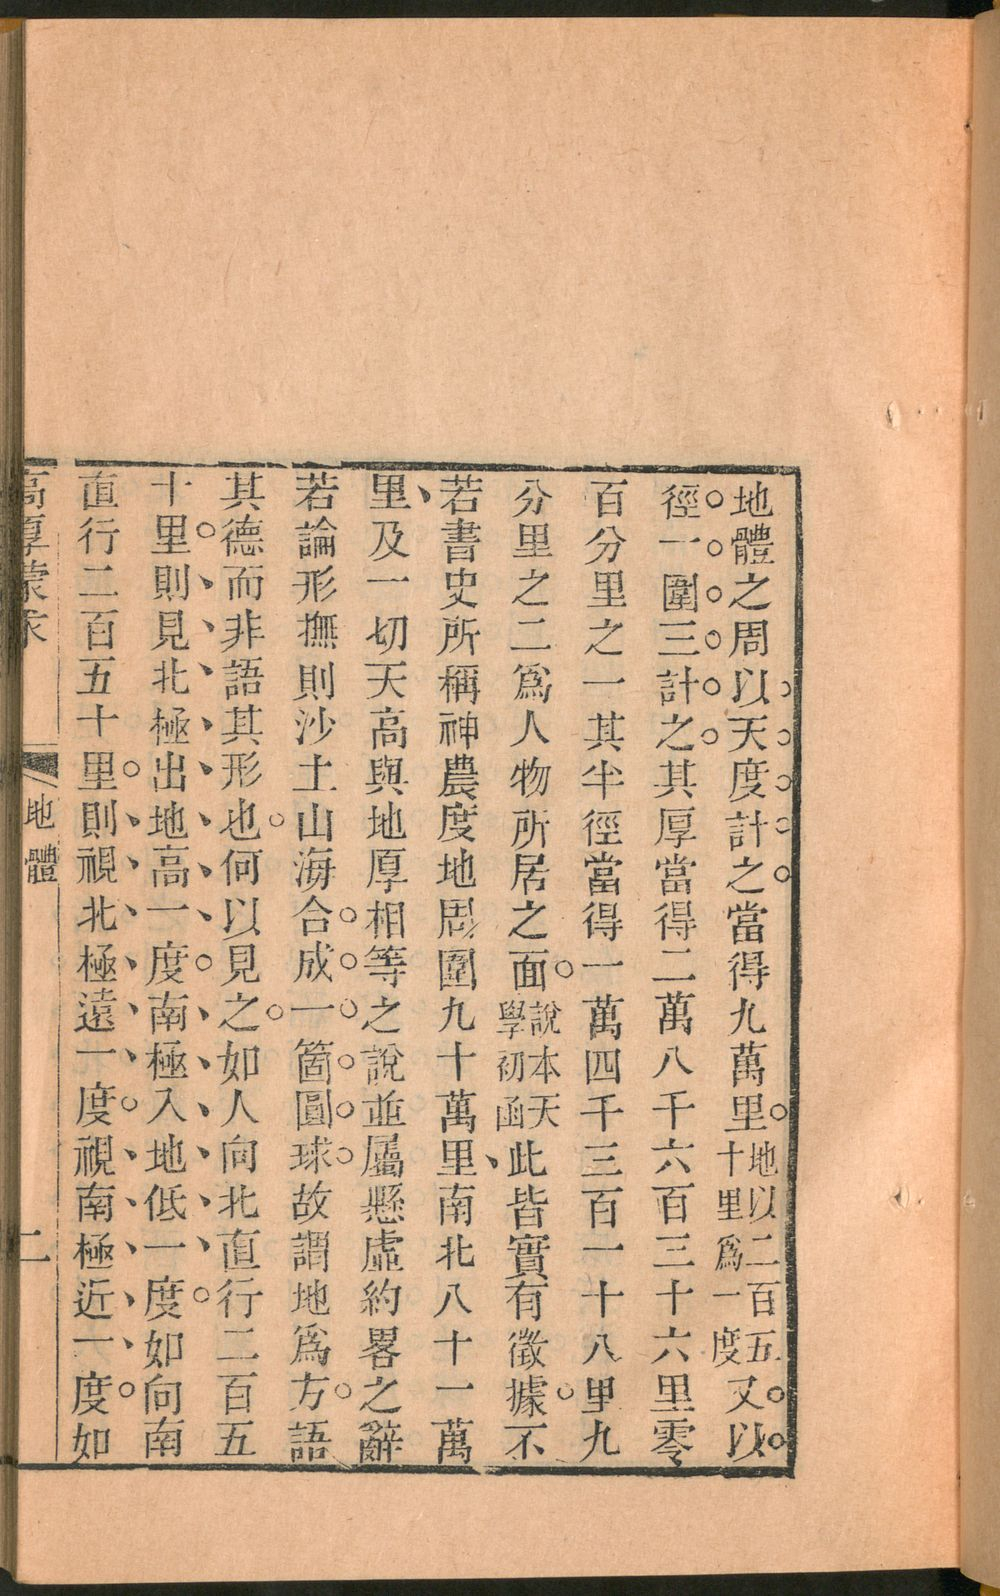 地體之周以天度計之當得九萬里地以二百五十里爲一度又以
徑一圍三計之其厚當得二萬八千六百三十六里零
百分里之一其半徑當得一萬四千三百一十八里九
分里之二爲人物所居之面說本天學初函此皆實有徵據不
若書史所稱神農度地周圍九十萬里南北八十一萬
里及一切天高與地厚相等之說並屬懸虛約畧之辭
若論形撫則沙土山海合成一箇圓球故謂地爲方語
其德而非語其形也何以見之如人向北直行二百五
十里則見北極出地高一度南極入地低一度如向南
直行二百五十里則視北極遠一度視南極近一度如
高厚蒙求
地體
二